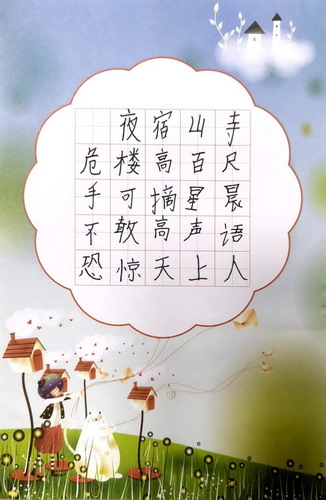 夜宿山寺
危楼高百尺
手可摘星晨
不敢高声语
恐惊天上人